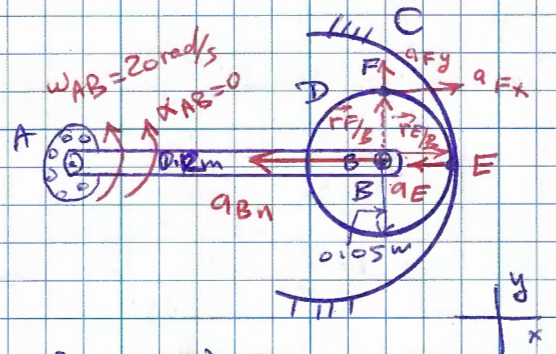 C
ω_AB = 20 rad/s
α_AB = 0
F
a_Fy
a_Fx
D
A
r_F/B
r_E/B
0.2m
B
E
B
a_E
a_Bn
0.05m
y
x